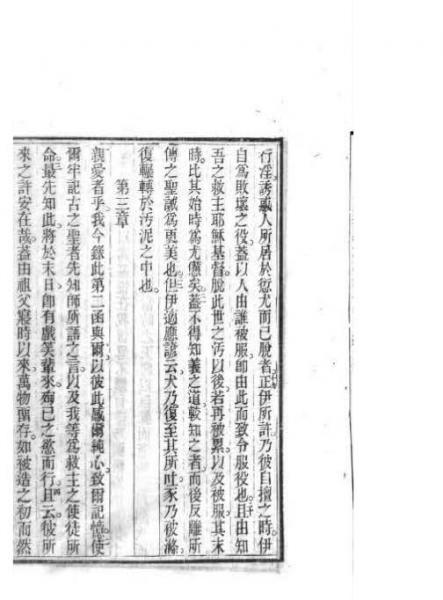 行淫誘惑人所居於愆尤而已脫者正伊所許乃彼自擅之時伊
自為敗壞之役蓋以人由誰被服卽由此而致令服役也且由知
吾之救主耶穌基督脫此世之汚以後若再被累以及被服其末
時比其始時為尤憊矣蓋不得知義之道較知之者而後反離所
傳之聖誡為更美也但伊適應諺云犬乃復至其所吐豕乃被滌
復輾轉於汚泥之中也
第三章
親愛者乎我今錄此第二函與爾以彼此感爾純心致爾記憶使
爾牢記古之聖者先知師所語之言以及我等為救主之使徒所
命最先知此將於末日卽有戲笑輩來殉己之慾而行且云彼所
來之許安在哉蓋由祖父寢時以來萬物猶存如被造之初而然